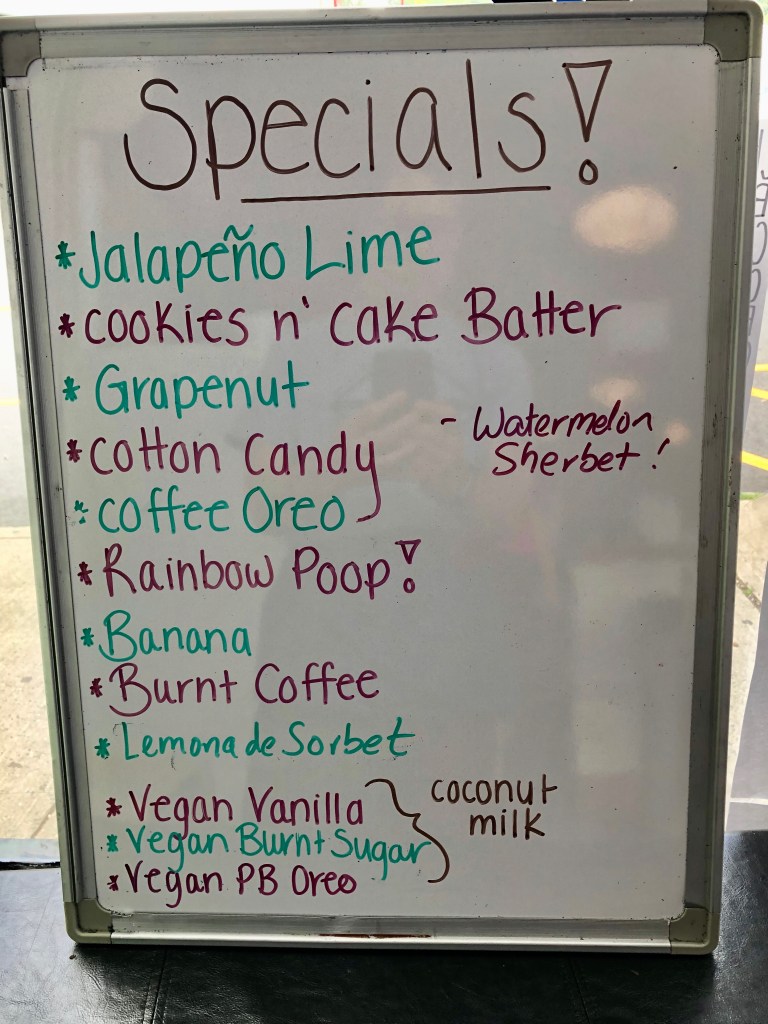 Specials!
*Jalapeño Lime
*cookies n' cake Batter
* Grapenut
*cotton Candy
- Watermelon
Sherbet!
* coffee Oreo
*Rainbow Poop!
*Banana
*Burnt Coffee
*Lemonade Sorbet
*Vegan Vanilla
*Vegan Burnt Sugar
*Vegan PB Oreo
coconut
milk